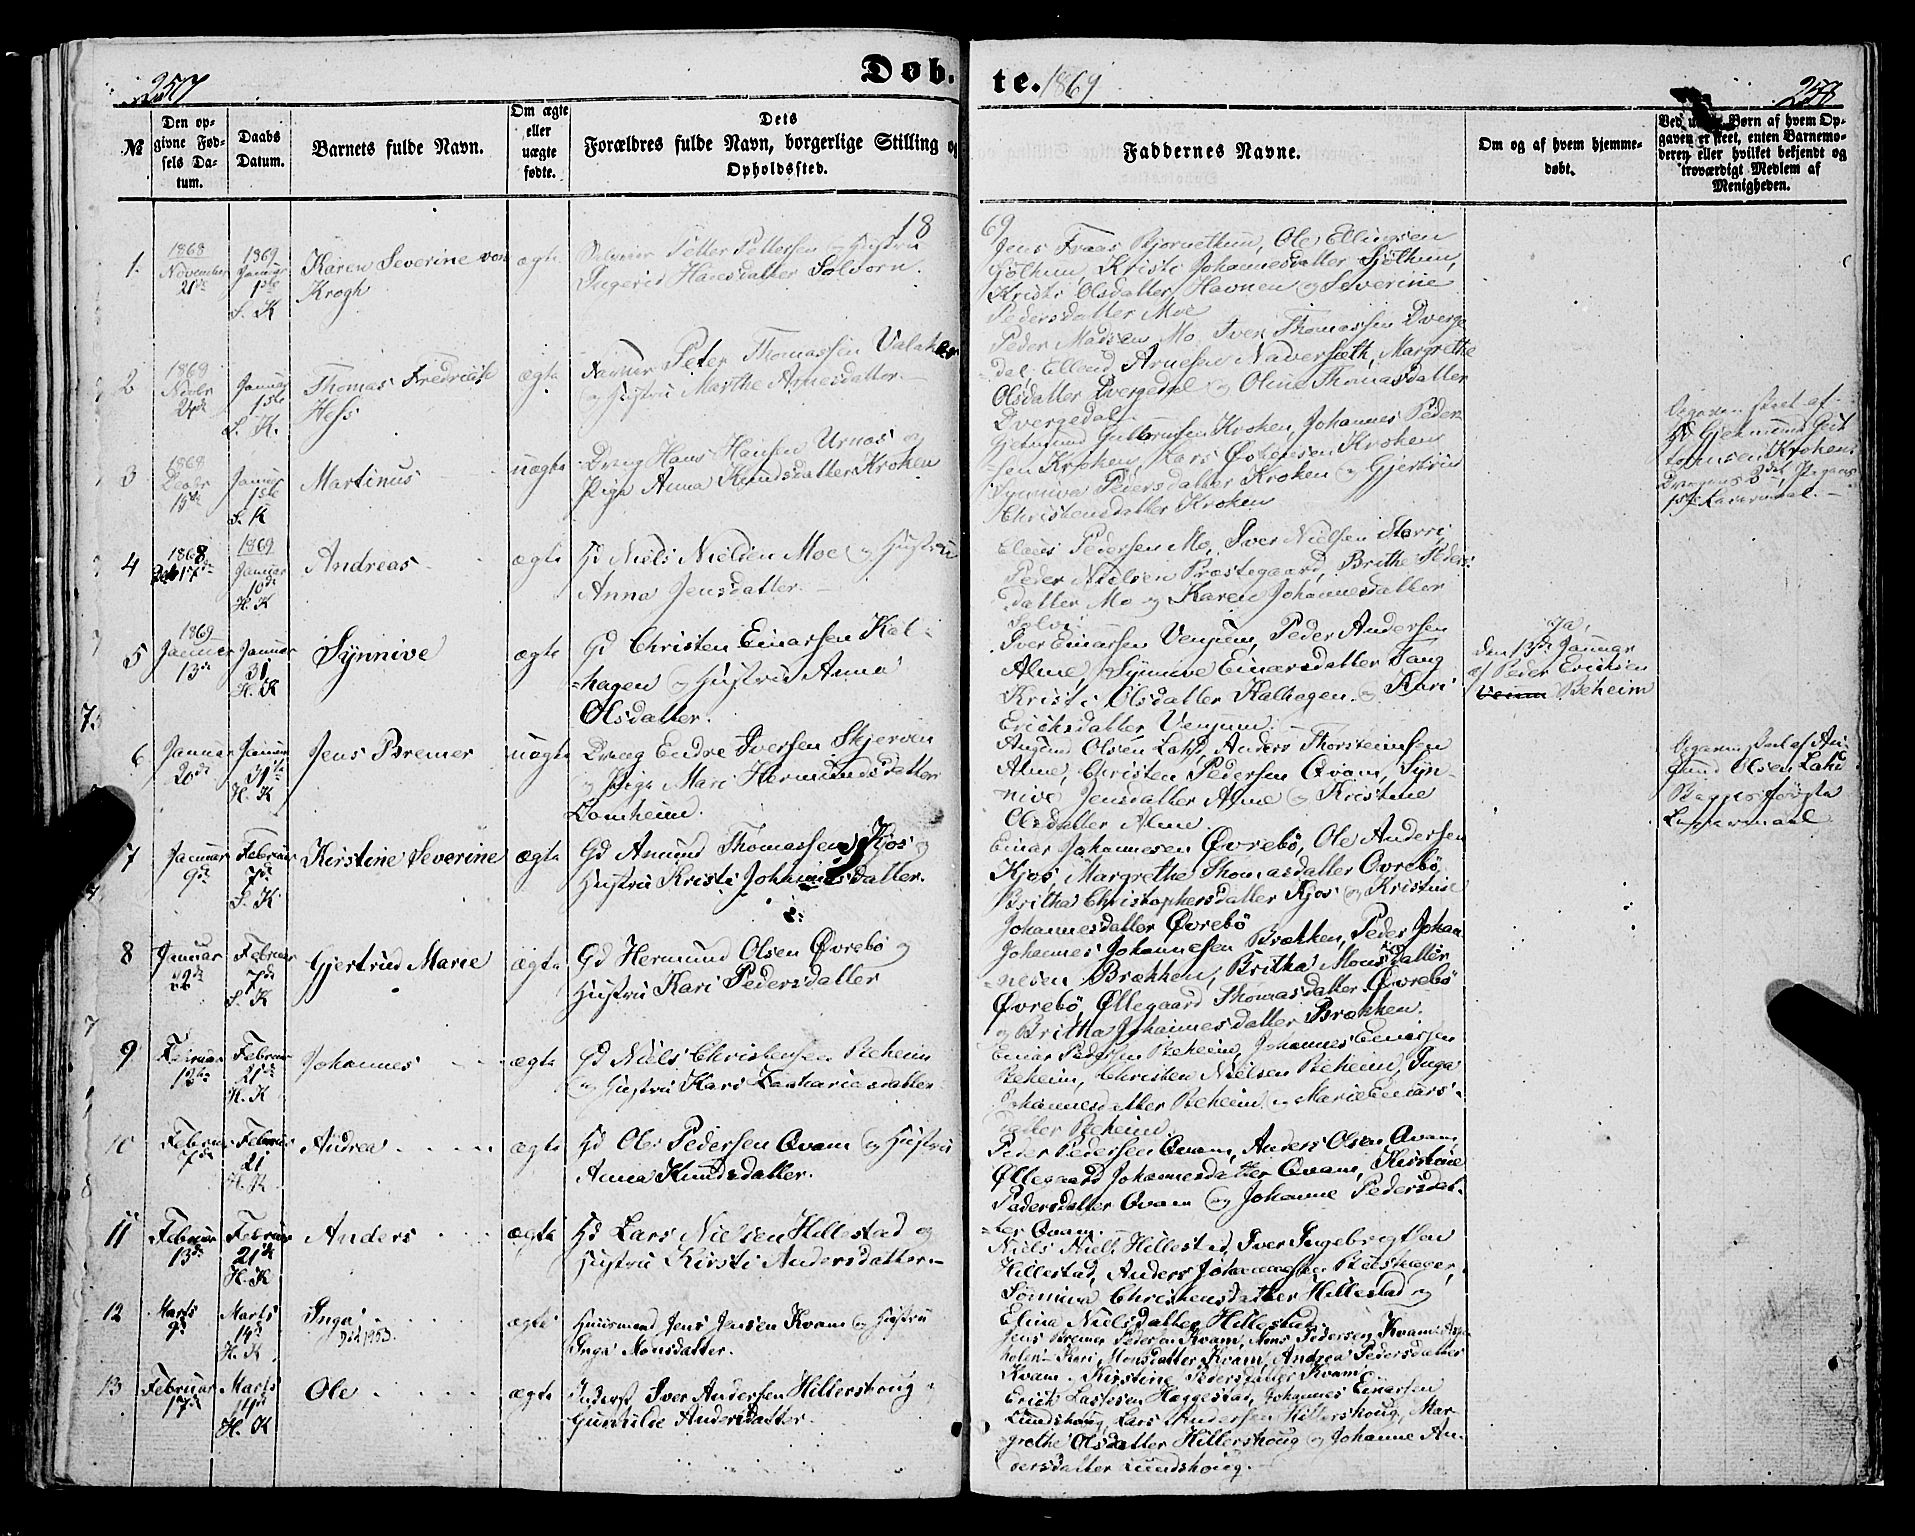 257
Døb-
te. 1869
258
№
Den op-
givne Fød-
sels Da-
tum.
Daabs
Datum.
Barnets fulde Navn.
Om ægte
eller
uægte
fødte.
Dets
Forældres fulde Navn, borgerlige Stilling og
Opholdssted.
Faddernes Navne.
Om og af hvem hjemme-
døbt.
Ved uægte Børn af hvem Op-
gaven er skeet, enten Barnemo-
deren eller hvilket bekjendt og
troværdigt Medlem af
Menigheden.
18
69
1.
1868
November
21de
1869
Januar
1ste
S. K
Karen Severine von
Krogh
ægte
Petter Pettersen og Hustru
Ingerid Hansdatter Solvorn.
Jens Fraas Bjørnethun, Ole Ellingsen
Kristi Johannesdatter
Kristi Olsdatter Havnen og Severine
Pedersdatter Moe
2
1868
Novbr
24de
Januar
1ste
S. K.
Thomas Fredrikse
Hess
ægte
Peter Thomassen Valaker
og Hustru Marthe Arnesdatter.
Peder Madsen Mo, Iver Thomassen Dverge
dal, Ellend Arnesen Naversæth, Margrethe
Olsdatter Dvergedal og Oline Thomasdatter
Dvergedal
3
1868
Decbr
15de
Januar
1ste
S. K
Martinus
uægte
Dreng Hans Hansen Urnes og
Pige Anna Knudsdatter Kroken
Gjermund Gulbransen Kroken, Johannes Peder-
sen Kroken, Lars Kroken
Synniva Pedersdatter Kroken og Gjertrud
Christensdatter Kroken
Opgaven skeet af
4
1868
Deb 17de
1869
Januar
10de
H. K
Andreas
ægte
Gd Niels Nielsen Moe og Hustru
Anna Jensdatter.
Claus Pedersen Mo, Iver Nielsen
Peder Nielsen Præstegaard, Brithe Peders-
datter Mo og Karen Johannesdatter
5
1869
Januar
13de
Januar
31
H. K
Synnive
ægte
Gd Christen Einarsen Kal-
hagen og Hustru Anna
Olsdatter.
Iver Einarsen Venjum, Peder Andersen
Alme, Synneve Einarsdatter
Kristi Olsdatter Kalhagen og Kari
Ericksdatter Venjum
Ja,
Den 13de Januar
af Peder Ericksen
Beheim
6
Januar
20de
Januar
31
H. K
Jens Bremer
uægte
Dreng Endre Iversen Skjerven
og Pige Mari Hermundsdatter
Lomheim.
Amund Olsen Lahd, Anders Thorsteinsen
Alme, Christen Pedersen Qvam, Syn-
nive Jensdatter Alme og Kristine
Olsdatter Alme
Opgaven skeet af Am-
und Olsen Lahd
Begges første
Leiermaal
7
Januar
9de
Februar
7de
S. K
Kirstine Severine
ægte
Gd Amund Thomassen Kjos og
Hustru Kristi Johannesdatter.
Einar Johannesen Øvrebø, Ole Andersen
Kjos, Margrethe Thomasdatter Øvrebø
Britha Christophersdatter Kjos og Kristine
Johannesdatter Øvrebø
8
Januar
22de
Februar
7de
S. K
Gjertrud Marie
ægte
Gd Hermund Olsen Øvrebø og
Hustru Kari Pedersdatter
Johannes Johannesen Brækken, Peder Johan-
nesen Brækken, Britha Monsdatter
Øvrebø, Øllegaard Thomasdatter Øvrebø
og Britha Johannesdatter Brækken.
9
Februar
12te
Februar
21de
H. K
Johannes
ægte
Gd Niels Christensen Beheim
og Hustru Kari Zachariasdatter
Einar Pedersen Beheim, Johannes Einarsen
Beheim, Christen Nielsen Beheim, Inga
Johannesdatter Beheim og Marie Einars-
datter Beheim
10
Februar
7de
Februar
21
H. K
Andrea
ægte
Gd Ole Pedersen Qvam og Hustru
Anna Knudsdatter.
Peder Pedersen Qvam, Anders Olsen Qvam,
Øllegaard Johannesdatter Qvam, Kirstine
Pedersdatter Qvam og Johanne Pedersdat-
ter Qvam.
11
Februar
13de
Februar
21de
H. K
Anders
ægte
Gd Lars Nielsen Hillestad og
Hustru Kirsti Andersdatter
Niels Niels. Hillestad, Iver Ingebrigtsen
Hillestad, Anders Johannessen
Sønniva Christensdatter Hillestad og
Elina Nielsdatter Hillestad
12
Marts
9de
Marts
14de
H. K
Inga
Død 1953.
ægte
Huusmand Jens Jensen Kvam og Hustru
Inga Monsdatter.
Jens Bremer Pedersen Kvam, Mons Pedersen Kvam
Kari Monsdatter Kvam, Andrea Pedersdatter
Kvam, Kirstine Pedersdatter Kvam
13
Februar
17de
Marts
14de
H. K
Ole
ægte
Inderst Iver Andersen Hillershoug
Gunhilde Andersdatter.
Erick Lassesen Haggestad, Johannes Einarsen
Lundshoug, Lars Andersen Hillershoug, Mar-
grethe Olsdatter Hillershoug og Johanne An-
dersdatter Lundshoug.